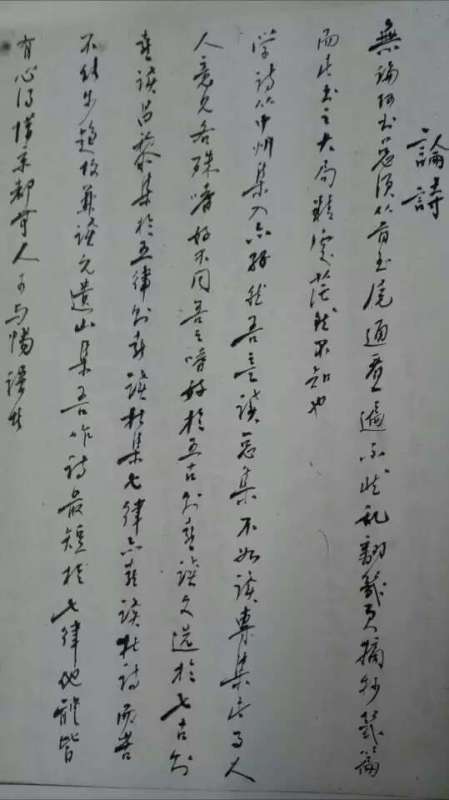 論詩
無論何書總須從首至尾通看一遍不然亂翻幾頁摘抄幾篇
而此書之大局精處茫然不知也
学詩從中州集入亦好然吾意讀總集不如讀專集此事人
人意見各殊嗜好不同吾之嗜好於五古則喜讀文選於七古則
喜讀昌黎集於五律則喜讀杜集七律亦喜讀杜詩而苦
不能步趨故兼讀元遺山集吾作詩最短於七律他體皆
有心得惜京都無人可与暢語者